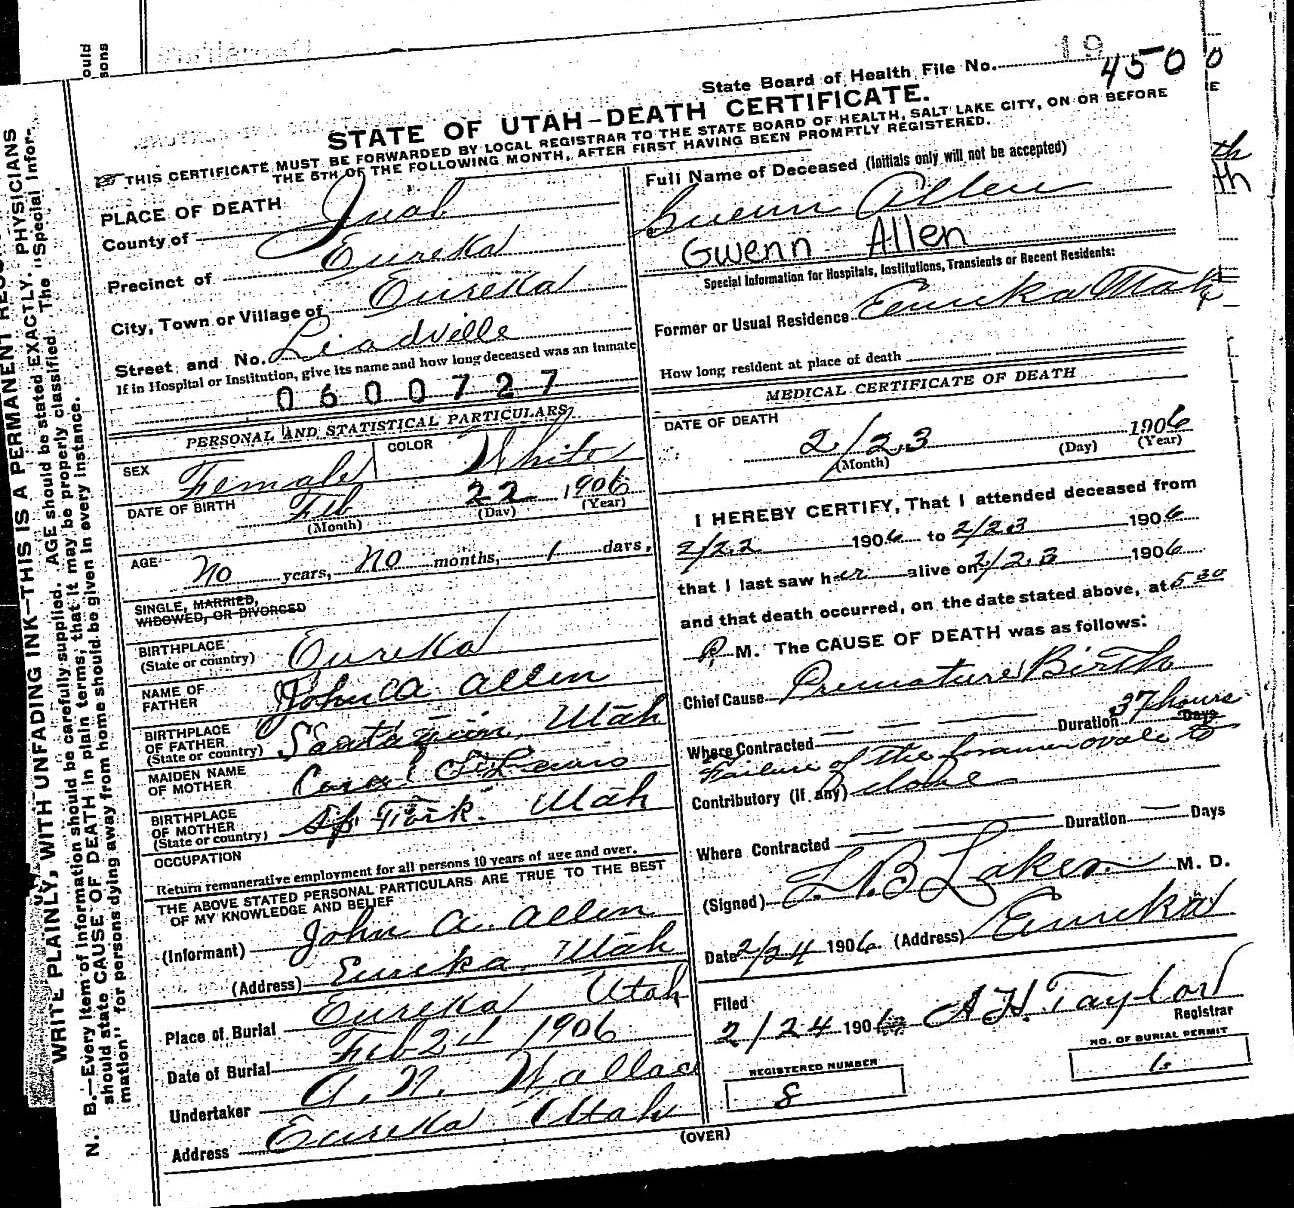 State Board of Health File No. 19
450
STATE OF UTAH—DEATH CERTIFICATE.
THIS CERTIFICATE MUST BE FORWARDED BY LOCAL REGISTRAR TO THE STATE BOARD OF HEALTH, SALT LAKE CITY, ON OR BEFORE
THE 5TH OF THE FOLLOWING MONTH, AFTER FIRST HAVING BEEN PROMPTLY REGISTERED.
PLACE OF DEATH
County of Juab
Precinct of Eureka
City, Town or Village of Eureka
Street and No. Leadville
If in Hospital or Institution, give its name and how long deceased was an inmate
0600727
PERSONAL AND STATISTICAL PARTICULARS
SEX Female COLOR White
DATE OF BIRTH Feb 22 1906
(Month) (Day) (Year)
AGE no years, no months, 1 days,
SINGLE, MARRIED,
WIDOWED, OR DIVORCED
BIRTHPLACE
(State or country) Eureka
NAME OF
FATHER John A Allen
BIRTHPLACE
OF FATHER
(State or country) Utah
MAIDEN NAME
OF MOTHER Lewis
BIRTHPLACE
OF MOTHER
(State or country) Sp. Fork. Utah
OCCUPATION
Return remunerative employment for all persons 10 years of age and over.
THE ABOVE STATED PERSONAL PARTICULARS ARE TRUE TO THE BEST
OF MY KNOWLEDGE AND BELIEF
(Informant) John A. Allen
(Address) Eureka, Utah
Place of Burial Eureka Utah
Date of Burial Feb 24 1906
Undertaker A. N. Wallace
Address Eureka Utah
Full Name of Deceased (Initials only will not be accepted)
Guenn Allen
Gwenn Allen
Special Information for Hospitals, Institutions, Transients or Recent Residents:
Former or Usual Residence Eureka Utah
How long resident at place of death
MEDICAL CERTIFICATE OF DEATH
DATE OF DEATH
2/23 1906
(Month) (Day) (Year)
I HEREBY CERTIFY, That I attended deceased from
2/22 1906 to 2/23 1906
that I last saw her alive on 2/23 1906
and that death occurred, on the date stated above, at 5 30
P. M. The CAUSE OF DEATH was as follows:
Chief Cause Premature Birth
Duration 37 hours Days
Where Contracted
Failure of the foramen ovale to
Contributory (if any) close
Duration Days
Where Contracted
(Signed) Laker M. D.
Date 2/24 1906 (Address) Eureka
Filed
2/24 1906 A H Taylor
Registrar
REGISTERED NUMBER
8
NO. OF BURIAL PERMIT
6
(OVER)
WRITE PLAINLY, WITH UNFADING INK—THIS IS A PERMANENT
N. B.—Every item of information should be carefully supplied. AGE should be stated EXACTLY. PHYSICIANS
should state CAUSE OF DEATH in plain terms, that it may be properly classified. The "Special Infor-
mation" for persons dying away from home should be given in every instance.